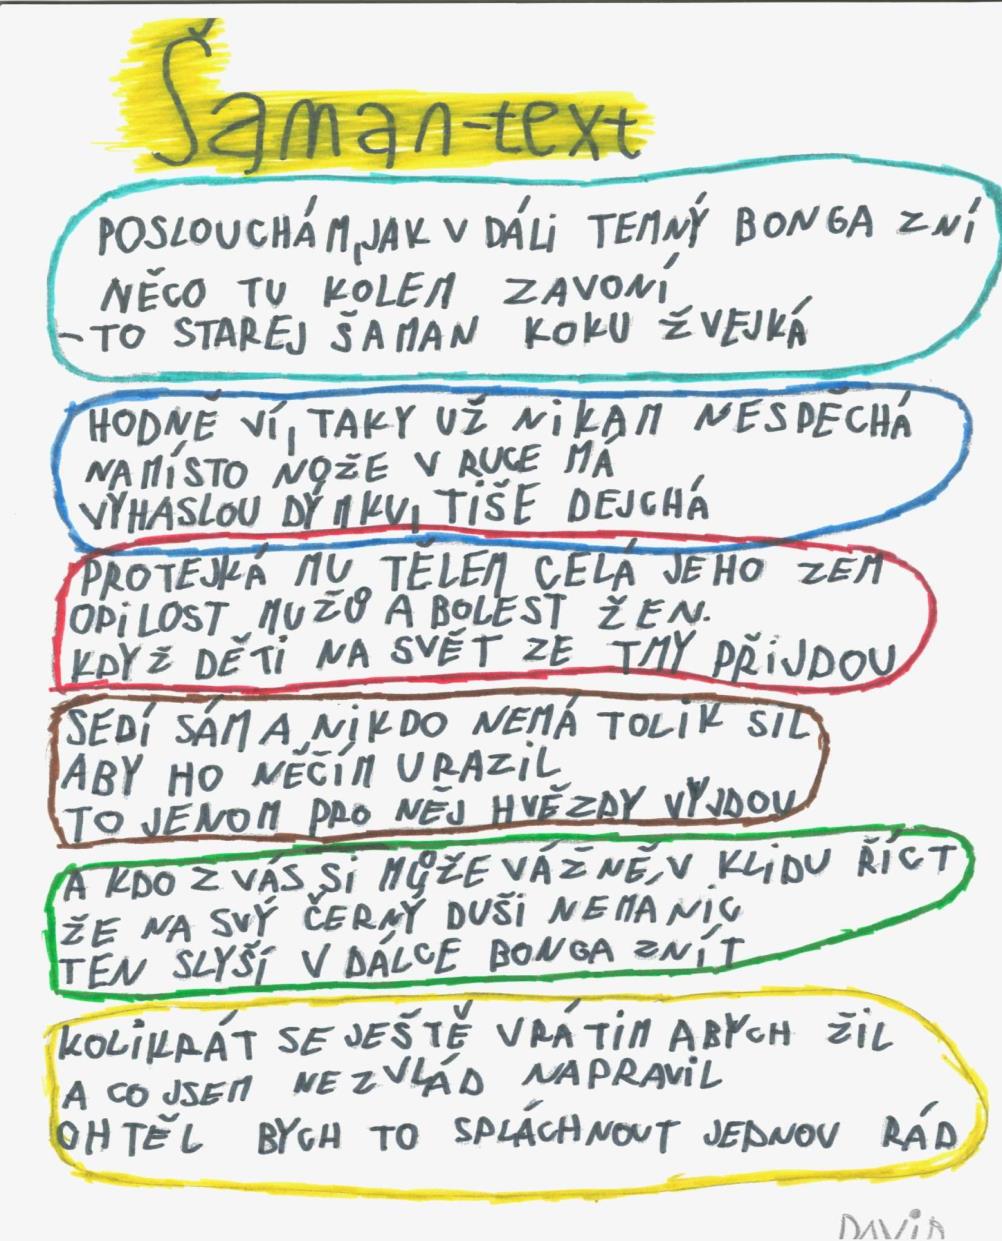 Šaman-text
POSLOUCHÁM, JAK V DÁLI TEMNÝ BONGA ZNÍ
NĚCO TU KOLEM ZAVONÍ
-TO STAREJ ŠAMAN KOKU ŽVEJKÁ
HODNĚ VÍ, TAKY UŽ NIKAM NESPĚCHÁ
NAMÍSTO NOŽE V RUCE MÁ
VYHASLOU DÝMKU, TIŠE DEJCHÁ
PROTEJKÁ MU TĚLEM CELÁ JEHO ZEM
OPILOST MUŽŮ A BOLEST ŽEN.
KDYŽ DĚTI NA SVĚT ZE TMY PŘIJDOU
SEDÍ SÁM A NIKDO NEMÁ TOLIK SIL
ABY HO NĚČÍM URAZIL
TO JENOM PRO NĚJ HVĚZDY VÝJDOU
A KDO Z VÁS SI MŮŽE VÁŽNĚ, V KLIDU ŘÍCT
ŽE NA SVÝ ČERNÝ DUŠI NEMA NIC
TEN SLYŠÍ V DÁLCE BONGA ZNÍT
KOLIKRÁT SE JEŠTĚ VRÁTIM ABYCH ŽIL
A CO JSEM NEZVLÁD NAPRAVIL
CHTĚL BYCH TO SPLÁCHNOUT JEDNOU RÁD
DAVID